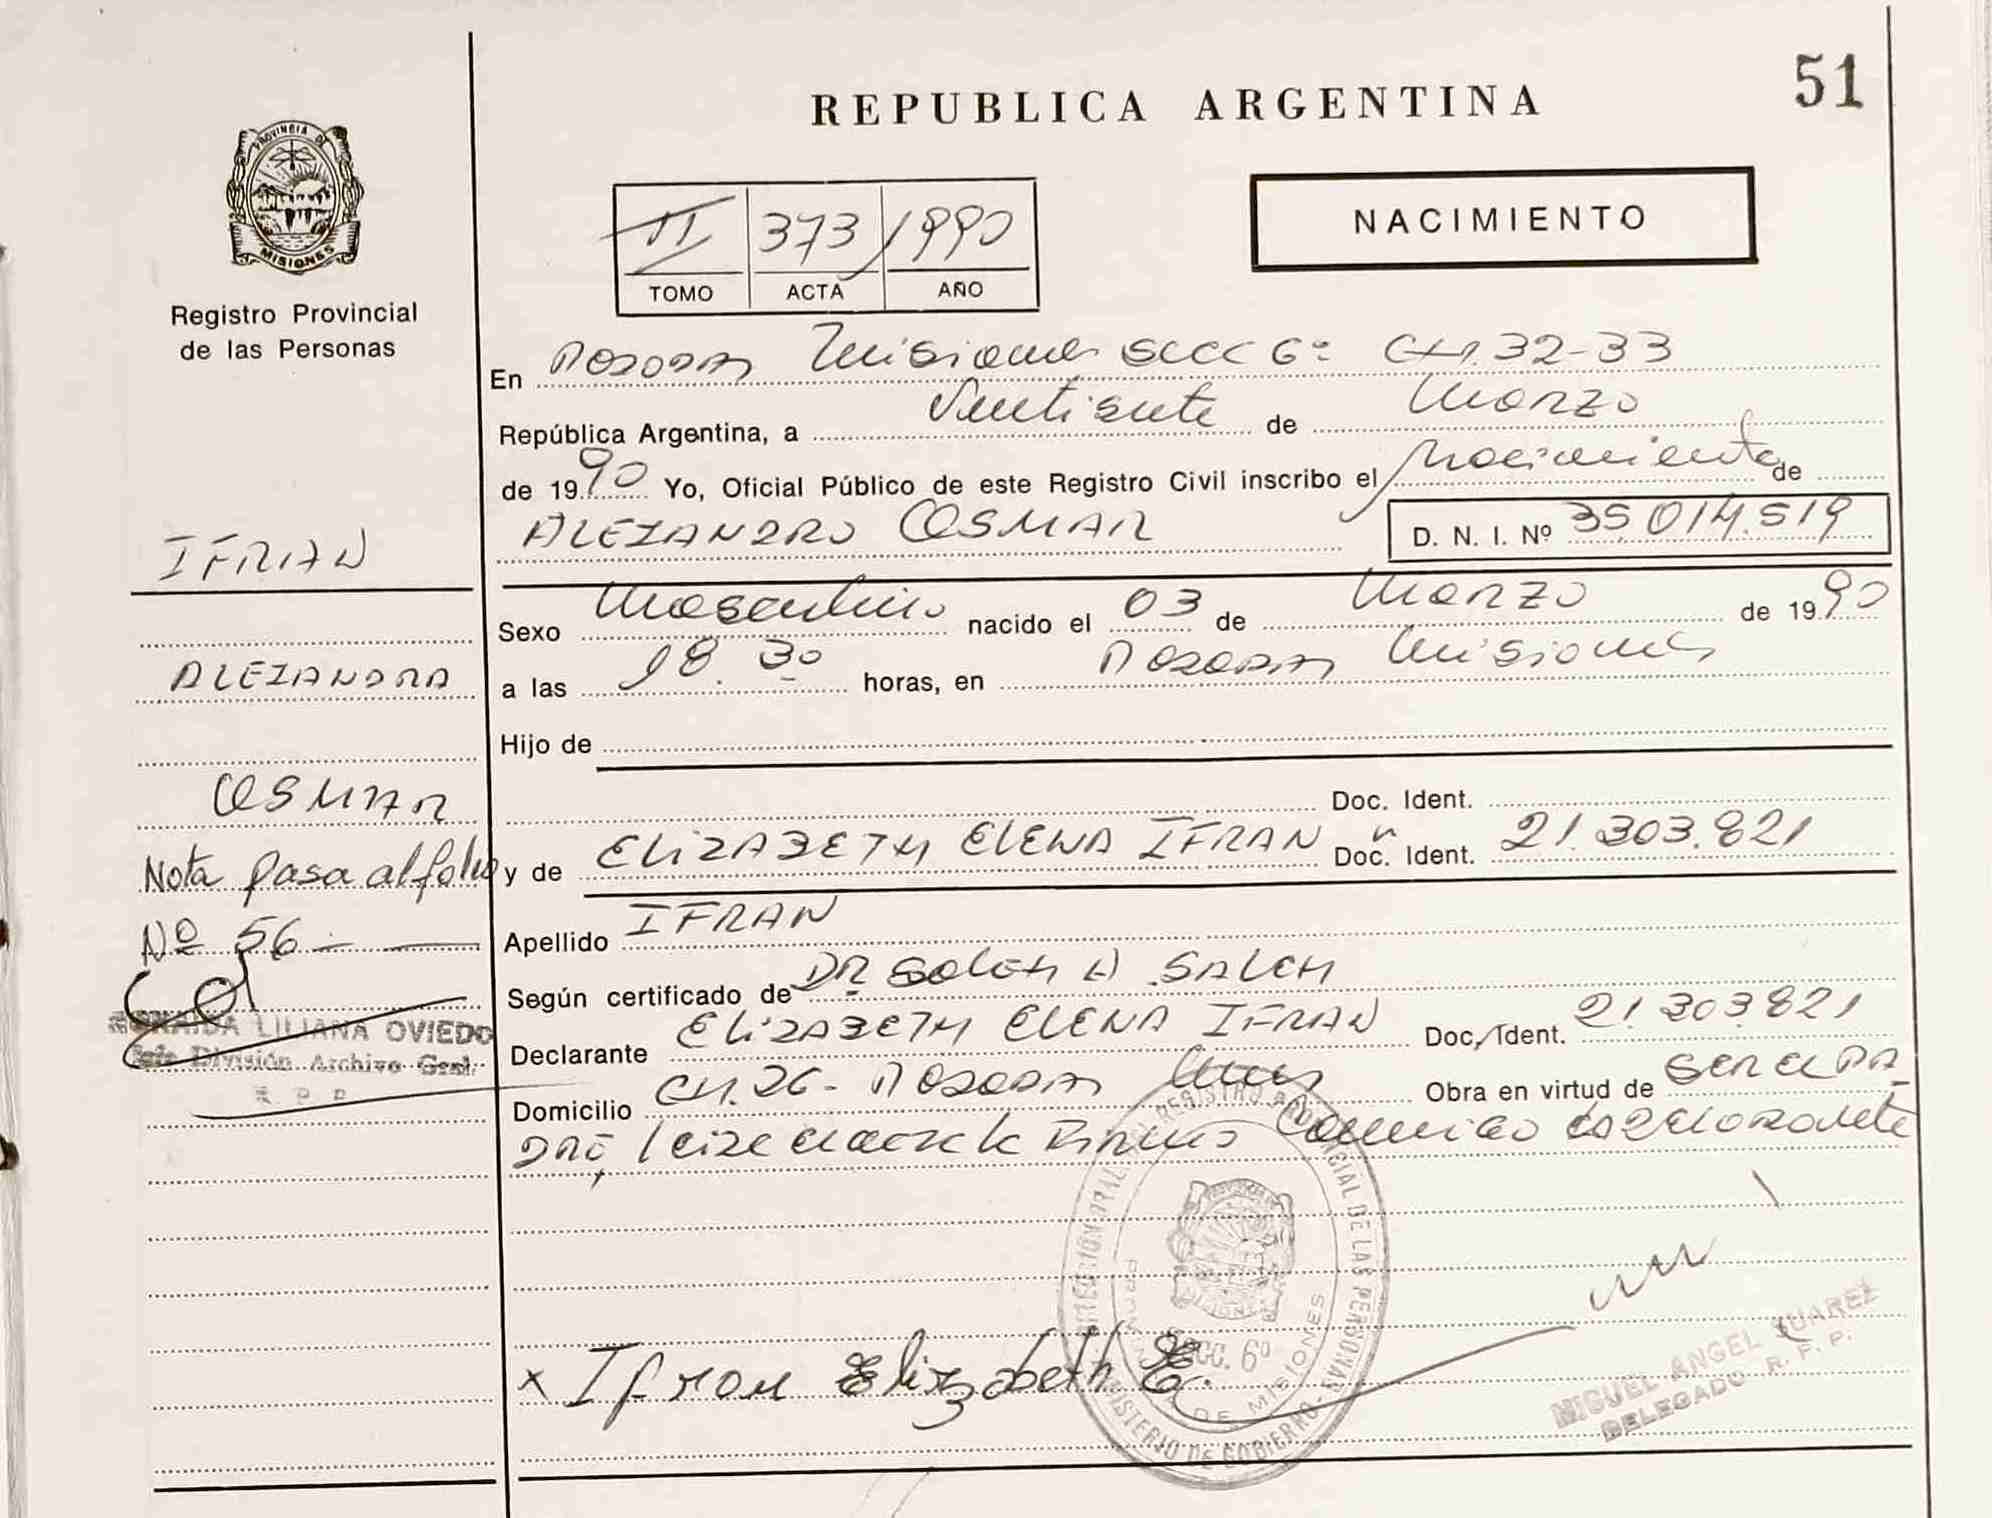 51
REPUBLICA ARGENTINA
PROVINCIA DE
MISIONES
Registro Provincial
de las Personas
II 373 1990
TOMO ACTA AÑO
NACIMIENTO
En Posadas Misiones SECC 6º CH. 32-33
República Argentina, a Veintisiete de Marzo
de 1990 Yo, Oficial Público de este Registro Civil inscribo el Nacimiento de
ALEJANDRO OSMAR D. N. I. Nº 35.014.519
IFRAN
ALEJANDRA
OSMAR
Nota pasa al folio
Nº 56
LILIANA OVIEDO
Jefe División Archivo Gral.
R P P
Sexo Masculino nacido el 03 de Marzo de 1990
a las 18.30 horas, en Posadas Misiones
Hijo de
Doc. Ident.
y de ELIZABETH ELENA IFRAN Doc. Ident. 21.303.821
Apellido IFRAN
Según certificado de DR SALEH A SALEH
Declarante ELIZABETH ELENA IFRAN Doc. Ident. 21.303.821
Domicilio CH. 26 - Posadas Mnes Obra en virtud de SER EL PA
DRE,
x Ifran Elizabeth E.
REGISTRO PROVINCIAL DE LAS PERSONAS
SECC. 6º
DE MISIONES
MINISTERIO DE GOBIERNO
MIGUEL ANGEL SUAREZ
DELEGADO R. P. P.